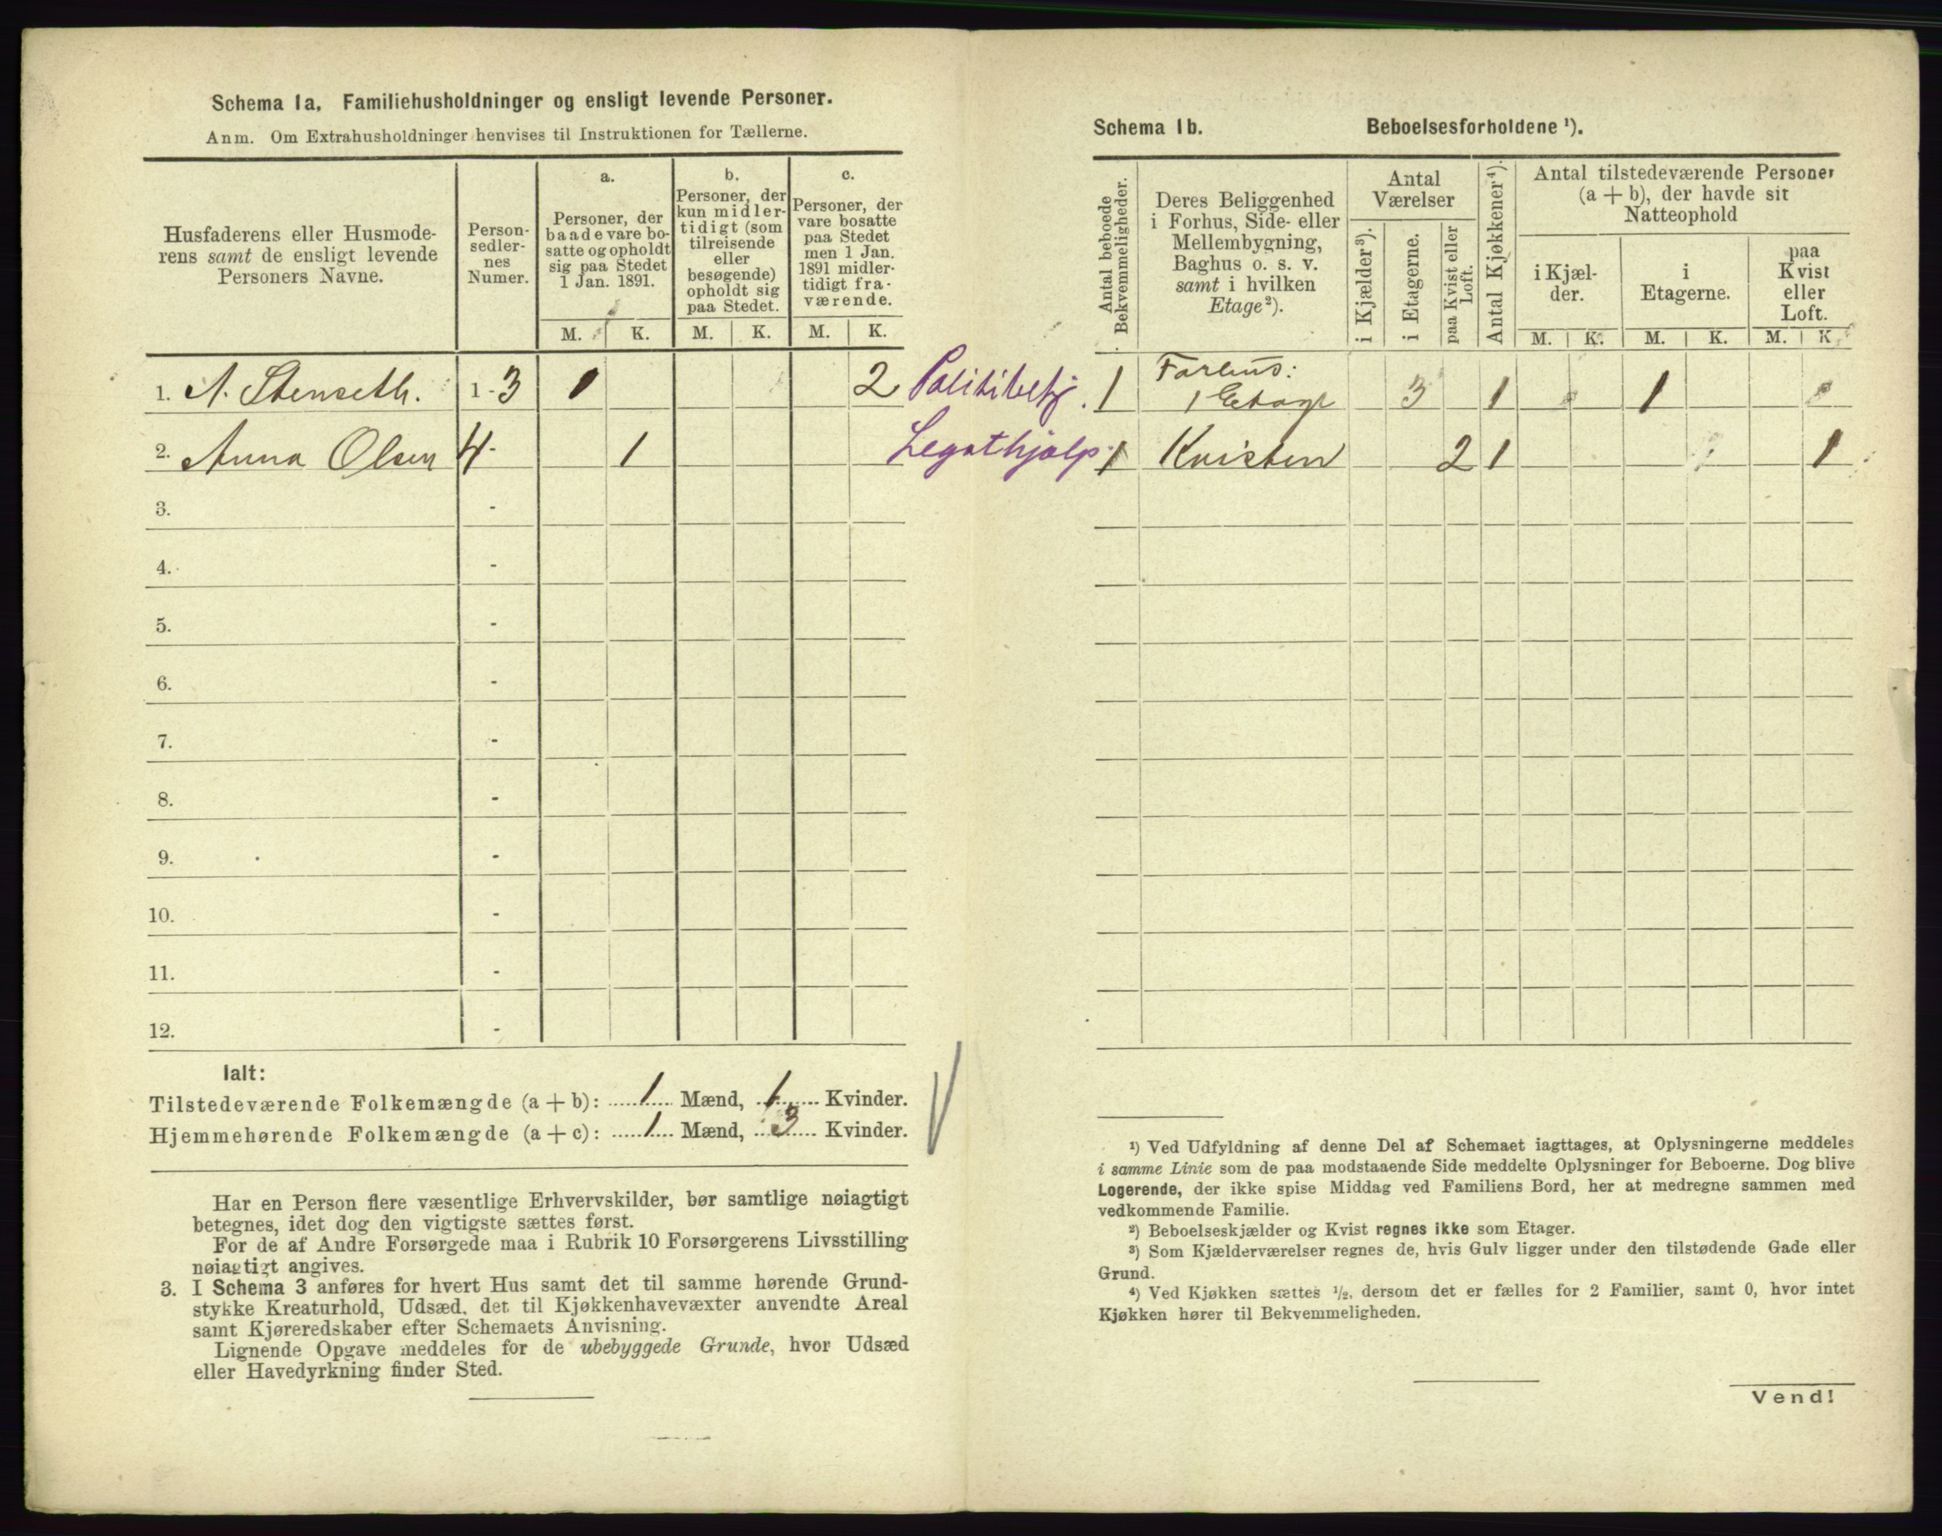 Schema 1a. Familiehusholdninger og ensligt levende Personer.
Anm. Om Extrahusholdninger henvises til Instruktionen for Tællerne.
Husfaderens eller Husmode-
rens samt de ensligt levende
Personers Navne.
Person-
sedler-
nes
Numer.
a.
Personer, der
baade vare bo-
satte og opholdt
sig paa Stedet
1 Jan. 1891.
b.
Personer, der
kun midler-
tidigt (som
tilreisende
eller
besøgende)
opholdt sig
paa Stedet.
c.
Personer, der
vare bosatte
paa Stedet
men 1 Jan.
1891 midler-
tidigt fra-
værende.
M. K. M. K. M. K.
1. A. Stenseth. 1-3 1 2 Politibetj.
2. Anna Olsen 4- 1 Legathjælp.
3. -
4. -
5. -
6. -
7. -
8. -
9. -
10. -
11. -
12. -
Ialt:
Tilstedeværende Folkemængde (a + b): 1 Mænd, 1 Kvinder.
Hjemmehørende Folkemængde (a + c): 1 Mænd, 3 Kvinder.
Har en Person flere væsentlige Erhvervskilder, bør samtlige nøiagtigt
betegnes, idet dog den vigtigste sættes først.
For de af Andre Forsørgede maa i Rubrik 10 Forsørgerens Livsstilling
nøiagtigt angives.
3. I Schema 3 anføres for hvert Hus samt det til samme hørende Grund-
stykke Kreaturhold, Udsæd, det til Kjøkkenhavevæxter anvendte Areal
samt Kjøreredskaber efter Schemaets Anvisning.
Lignende Opgave meddeles for de ubebyggede Grunde, hvor Udsæd
eller Havedyrkning finder Sted.
Schema 1b. Beboelsesforholdene ¹).
Antal beboede
Bekvemmeligheder.
Deres Beliggenhed
i Forhus, Side- eller
Mellembygning,
Baghus o. s. v.
samt i hvilken
Etage²).
Antal
Værelser
i Kjælder³).
i Etagerne.
paa Kvist eller
Loft.
Antal Kjøkkener⁴).
Antal tilstedeværende Personer
(a + b), der havde sit
Natteophold
i Kjæl-
der.
i
Etagerne.
paa
Kvist
eller
Loft.
M. K. M. K. M. K
1 Forhus:
1 Etage 3 1 1
1 Kvisten 2 1 1
¹) Ved Udfyldning af denne Del af Schemaet iagttages, at Oplysningerne meddeles
i samme Linie som de paa modstaaende Side meddelte Oplysninger for Beboerne. Dog blive
Logerende, der ikke spise Middag ved Familiens Bord, her at medregne sammen med
vedkommende Familie.
²) Beboelseskjælder og Kvist regnes ikke som Etager.
³) Som Kjælderværelser regnes de, hvis Gulv ligger under den tilstødende Gade eller
Grund.
⁴) Ved Kjøkken sættes ½, dersom det er fælles for 2 Familier, samt 0, hvor intet
Kjøkken hører til Bekvemmeligheden.
Vend!